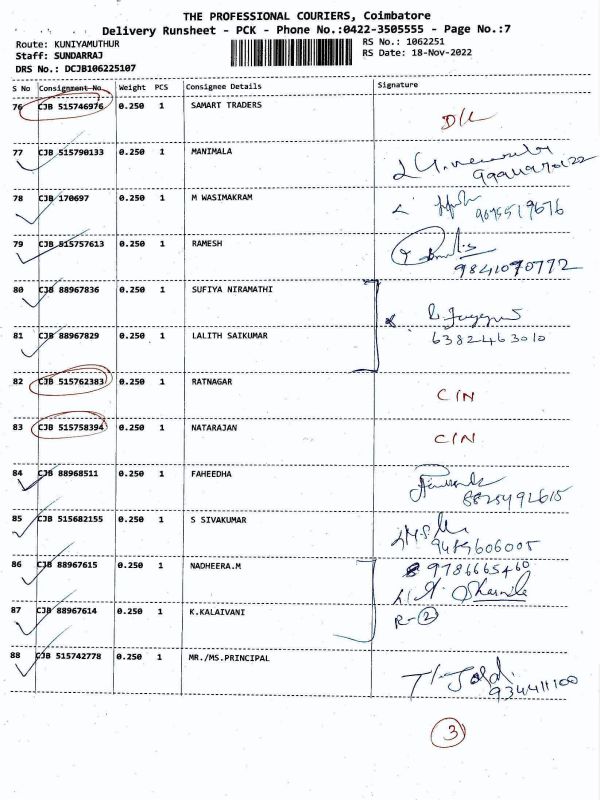 THE PROFESSIONAL COURIERS, Coimbatore
Delivery Runsheet - PCK - Phone No.:0422-3505555 - Page No.:7
Route: KUNIYAMUTHUR
RS No.: 1062251
Staff: SUNDARRAJ
RS Date: 18-Nov-2022
DRS No.: DCJB106225107
S No Consignment No Weight PCS Consignee Details Signature
76 CJB 515746976 0.250 1 SAMART TRADERS D/L
77 CJB 515790133 0.250 1 MANIMALA
78 CJB 170697 0.250 1 M WASIMAKRAM
79 CJB 515757613 0.250 1 RAMESH
9841070772
80 CJB 88967836 0.250 1 SUFIYA NIRAMATHI
81 CJB 88967829 0.250 1 LALITH SAIKUMAR 6382463010
82 CJB 515762383 0.250 1 RATNAGAR C/N
83 CJB 515758394 0.250 1 NATARAJAN C/N
84 CJB 88968511 0.250 1 FAHEEDHA
8825492615
85 CJB 515682155 0.250 1 S SIVAKUMAR
9489606005
86 CJB 88967615 0.250 1 NADHEERA.M 9786665460
87 CJB 88967614 0.250 1 K.KALAIVANI R-2
88 CJB 515742778 0.250 1 MR./MS.PRINCIPAL
934411100
3